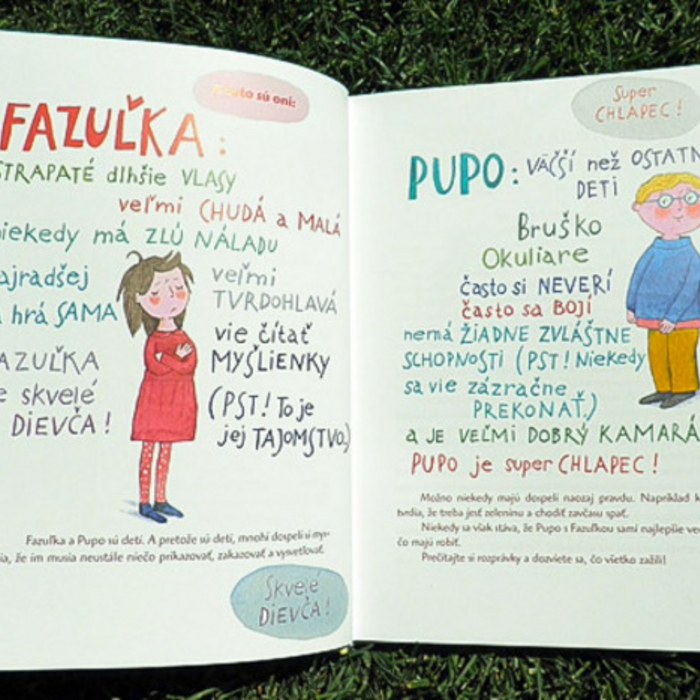 to sú oni:
FAZUĽKA:
STRAPATÉ dlhšie VLASY
veľmi CHUDÁ a MALÁ
niekedy má ZLÚ NÁLADU
najradšej
hrá SAMA
veľmi
TVRDOHLAVÁ
vie čítať
MYŠLIENKY
(PST! To je
jej TAJOMSTVO.)
FAZUĽKA
je skvelé
DIEVČA!
Fazuľka a Pupo sú deti. A pretože sú deti, mnohí dospelí si mys-
, že im musia neustále niečo prikazovať, zakazovať a vysvetľovať.
Skvelé
DIEVČA!
Super
CHLAPEC!
PUPO: VÄČŠÍ než OSTATN
DETI
Bruško
Okuliare
často si NEVERÍ
často sa BOJÍ
nemá ŽIADNE ZVLÁŠTNE
SCHOPNOSTI (PST! Niekedy
sa vie zázračne
PREKONAŤ.)
a JE VEĽMI DOBRÝ KAMARÁ
PUPO je super CHLAPEC!
Možno niekedy majú dospelí naozaj pravdu. Napríklad k
tvrdia, že treba jesť zeleninu a chodiť zavčasu spať.
Niekedy sa však stáva, že Pupo s Fazuľkou sami najlepšie ve
čo majú robiť.
Prečítajte si rozprávky a dozviete sa, čo všetko zažili!